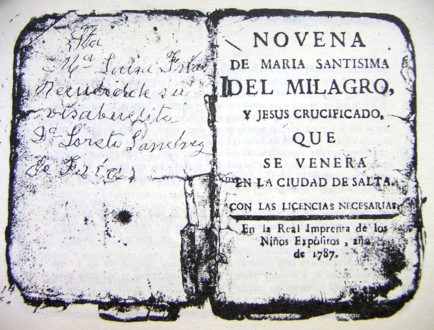 Sta
Mª
Recuerdo de su
visabuelita
Dª Loreto Sanchez
de Frias
NOVENA
DE MARIA SANTISIMA
DEL MILAGRO,
Y JESUS CRUCIFICADO,
QUE
SE VENERA
EN LA CIUDAD DE SALTA.
CON LAS LICENCIAS NECESARIAS.
En la Real Imprenta de los
Niños Expósitos, año
de 1787.